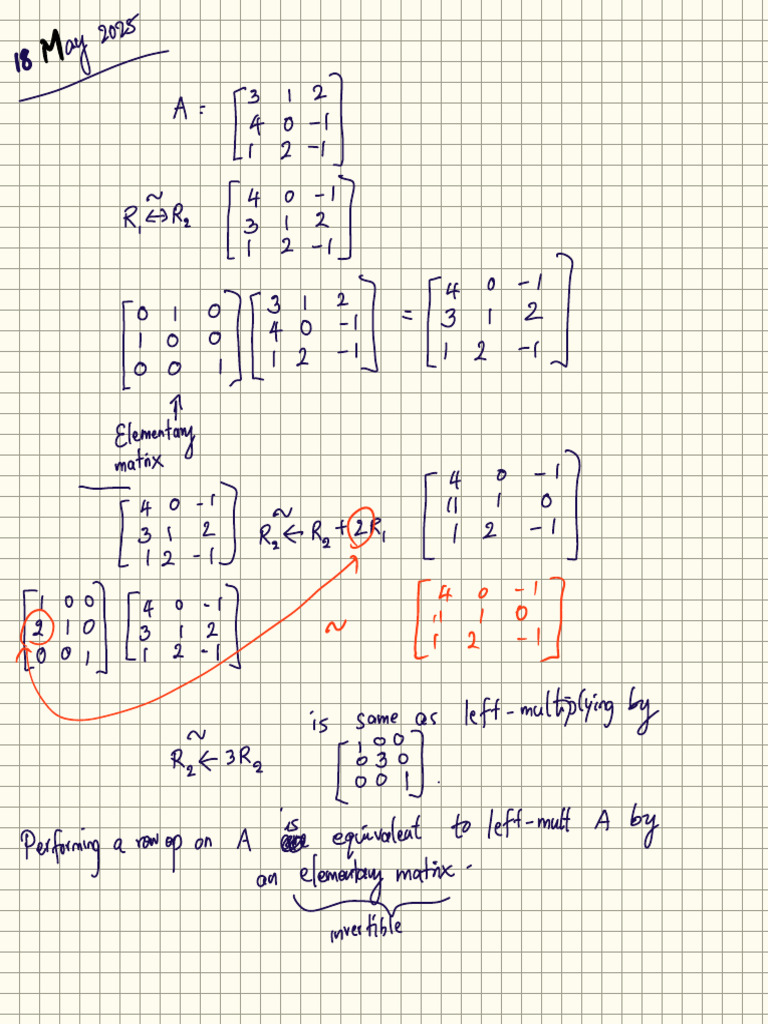 18 May 2025
A = [3 1 2
4 0 -1
1 2 -1]
R₁ ↔ R₂ ~ [4 0 -1
3 1 2
1 2 -1]
[0 1 0 [3 1 2 = [4 0 -1
1 0 0 4 0 -1 3 1 2
0 0 1] 1 2 -1] 1 2 -1]
↑
Elementary
matrix
[4 0 -1 ~ [4 0 -1
3 1 2 R₂ ← R₂ + 2R₁ 11 1 0
1 2 -1] 1 2 -1]
[1 0 0 [4 0 -1 ~ [4 0 -1
2 1 0 3 1 2 11 1 0
0 0 1] 1 2 -1] 1 2 -1]
~ R₂ ← 3R₂ is same as left-multiplying by
[1 0 0
0 3 0
0 0 1].
Performing a row op on A is equivalent to left-mult A by
an elementary matrix.
invertible